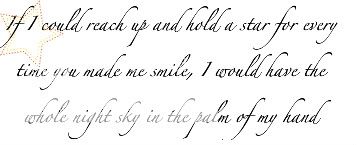 If I could reach up and hold a star for every
time you made me smile, I would have the
whole night sky in the palm of my hand